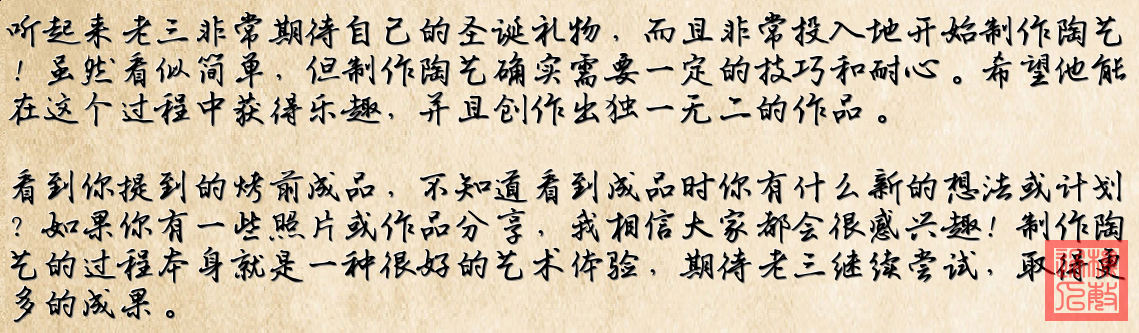 听起来老三非常期待自己的圣诞礼物，而且非常投入地开始制作陶艺
！虽然看似简单，但制作陶艺确实需要一定的技巧和耐心。希望他能
在这个过程中获得乐趣，并且创作出独一无二的作品。
看到你提到的烤前成品，不知道看到成品时你有什么新的想法或计划
？如果你有一些照片或作品分享，我相信大家都会很感兴趣！制作陶
艺的过程本身就是一种很好的艺术体验，期待老三继续尝试，取得更
多的成果。